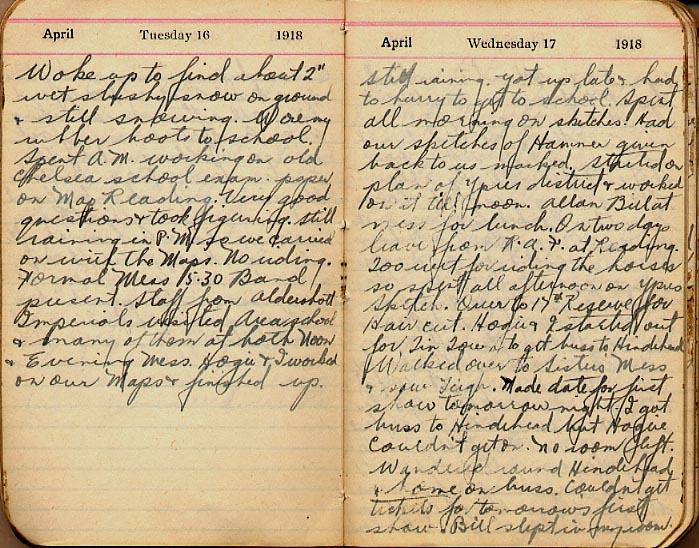 April Tuesday 16 1918
Woke up to find about 2"
wet slushy snow on ground
& still snowing. Wore my
rubber boots to school.
Spent A.M. working on old
Chelsea school exam. paper
on Map Reading. Very good
questions & took figuring. Still
raining in P.M. so we carried
on with the Maps. No riding.
Normal Mess 15:30 Band
present. Staff from Aldershott
Imperials visited Area school
& many of them at both Noon
& Evening Mess. Hogu & I worked
on our Maps & finished up.
April Wednesday 17 1918
Still raining. Got up late & had
to hurry to get to school. Spent
all morning on sketches. Had
our sketches of Hammer given
back to us marked, started on
plan of Ypres district & worked
on it till noon. Allan Bill at
mess for lunch. On two days
leave from R.A.F. at Reading.
Too wet for riding the horses
so spent all afternoon on Ypres
Sketch. Over to 17th Reserve for
hair cut. Hogu & I started out
for Tin Town to get buss to Hindehead
Walked over to Sisters Mess
& saw Leigh. Made date for first
show tomorrow night. I got
buss to Hindehead but Hogue
couldn't get on. No room left.
Wandered round Hindehead
& home on buss. Couldn't get
tickets for tomorrows first
show. Bill slept in my room.